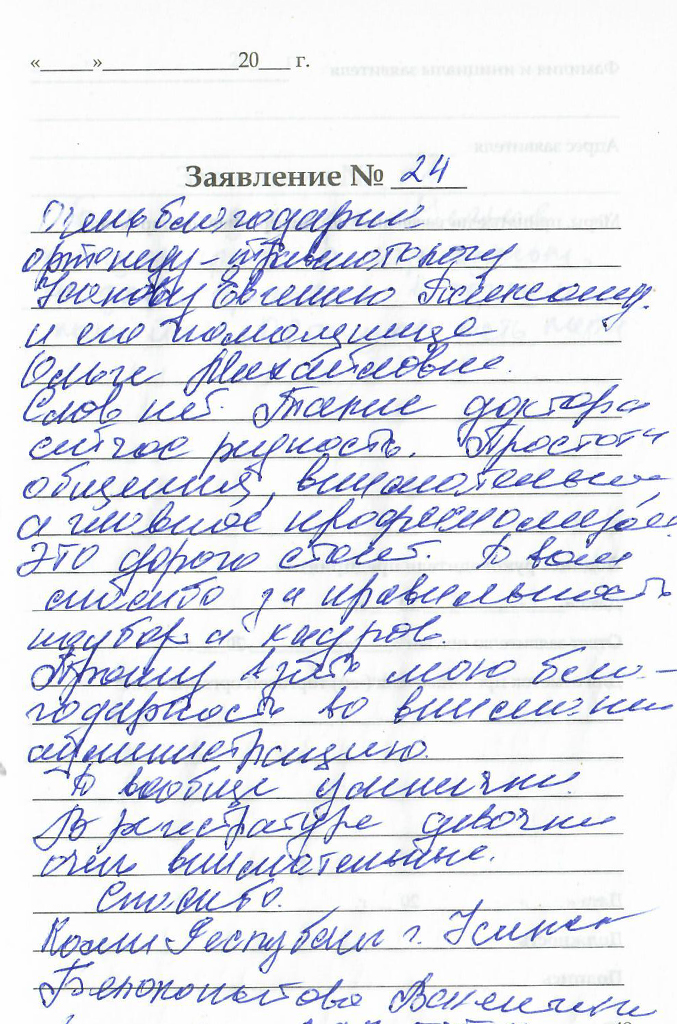 «_____»____________20___ г.
Заявление № 24
Очень благодарны
ортопеду-травмотологу
Евгению Александ.
и его помощнице
Ольге Михайловне.
Слов нет. Такие доктора
сейчас редкость. Простота
общения, внимательны
а главное
это дорого стоит. А вам
спасибо за правильность
подбора кадров.
Прошу взять мою бла-
годарность во внимании
администрацию.
А вообще умнички.
В регистратуре девочки
очень внимательные.
Спасибо.
Коми Республики г. Усинск
Белокопытова Валентина